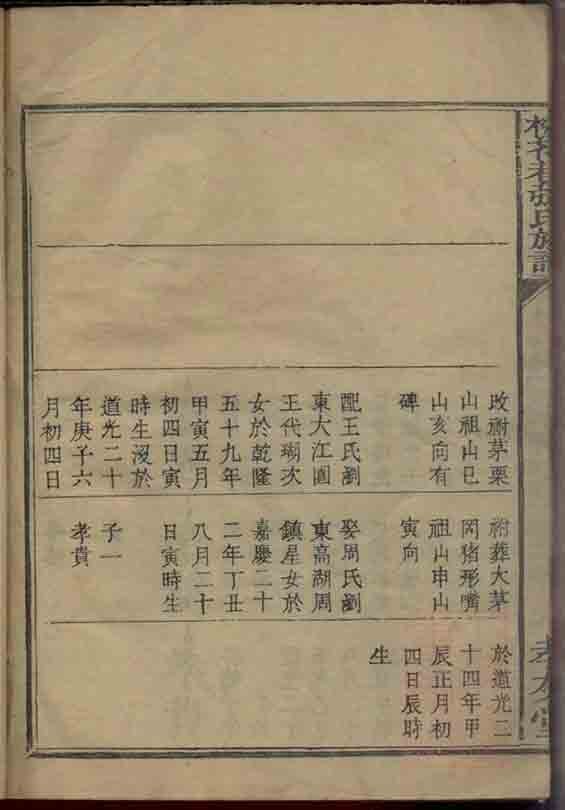 氏族譜
改祔茅栗
山祖山巳
山亥向有
碑
配王氏瀏
東大江
王代瑚次
女於乾隆
五十九年
甲寅五月
初四日寅
時生沒於
道光二十
年庚子六
月初四日
祔葬大茅
冈猪形嘴
祖山申山
寅向
娶周氏瀏
東高湖周
鎮星女於
嘉慶二十
二年丁丑
八月二十
日寅時生
子一
孝貴
於道光二
十四年甲
辰正月初
四日辰時
生
孝友堂